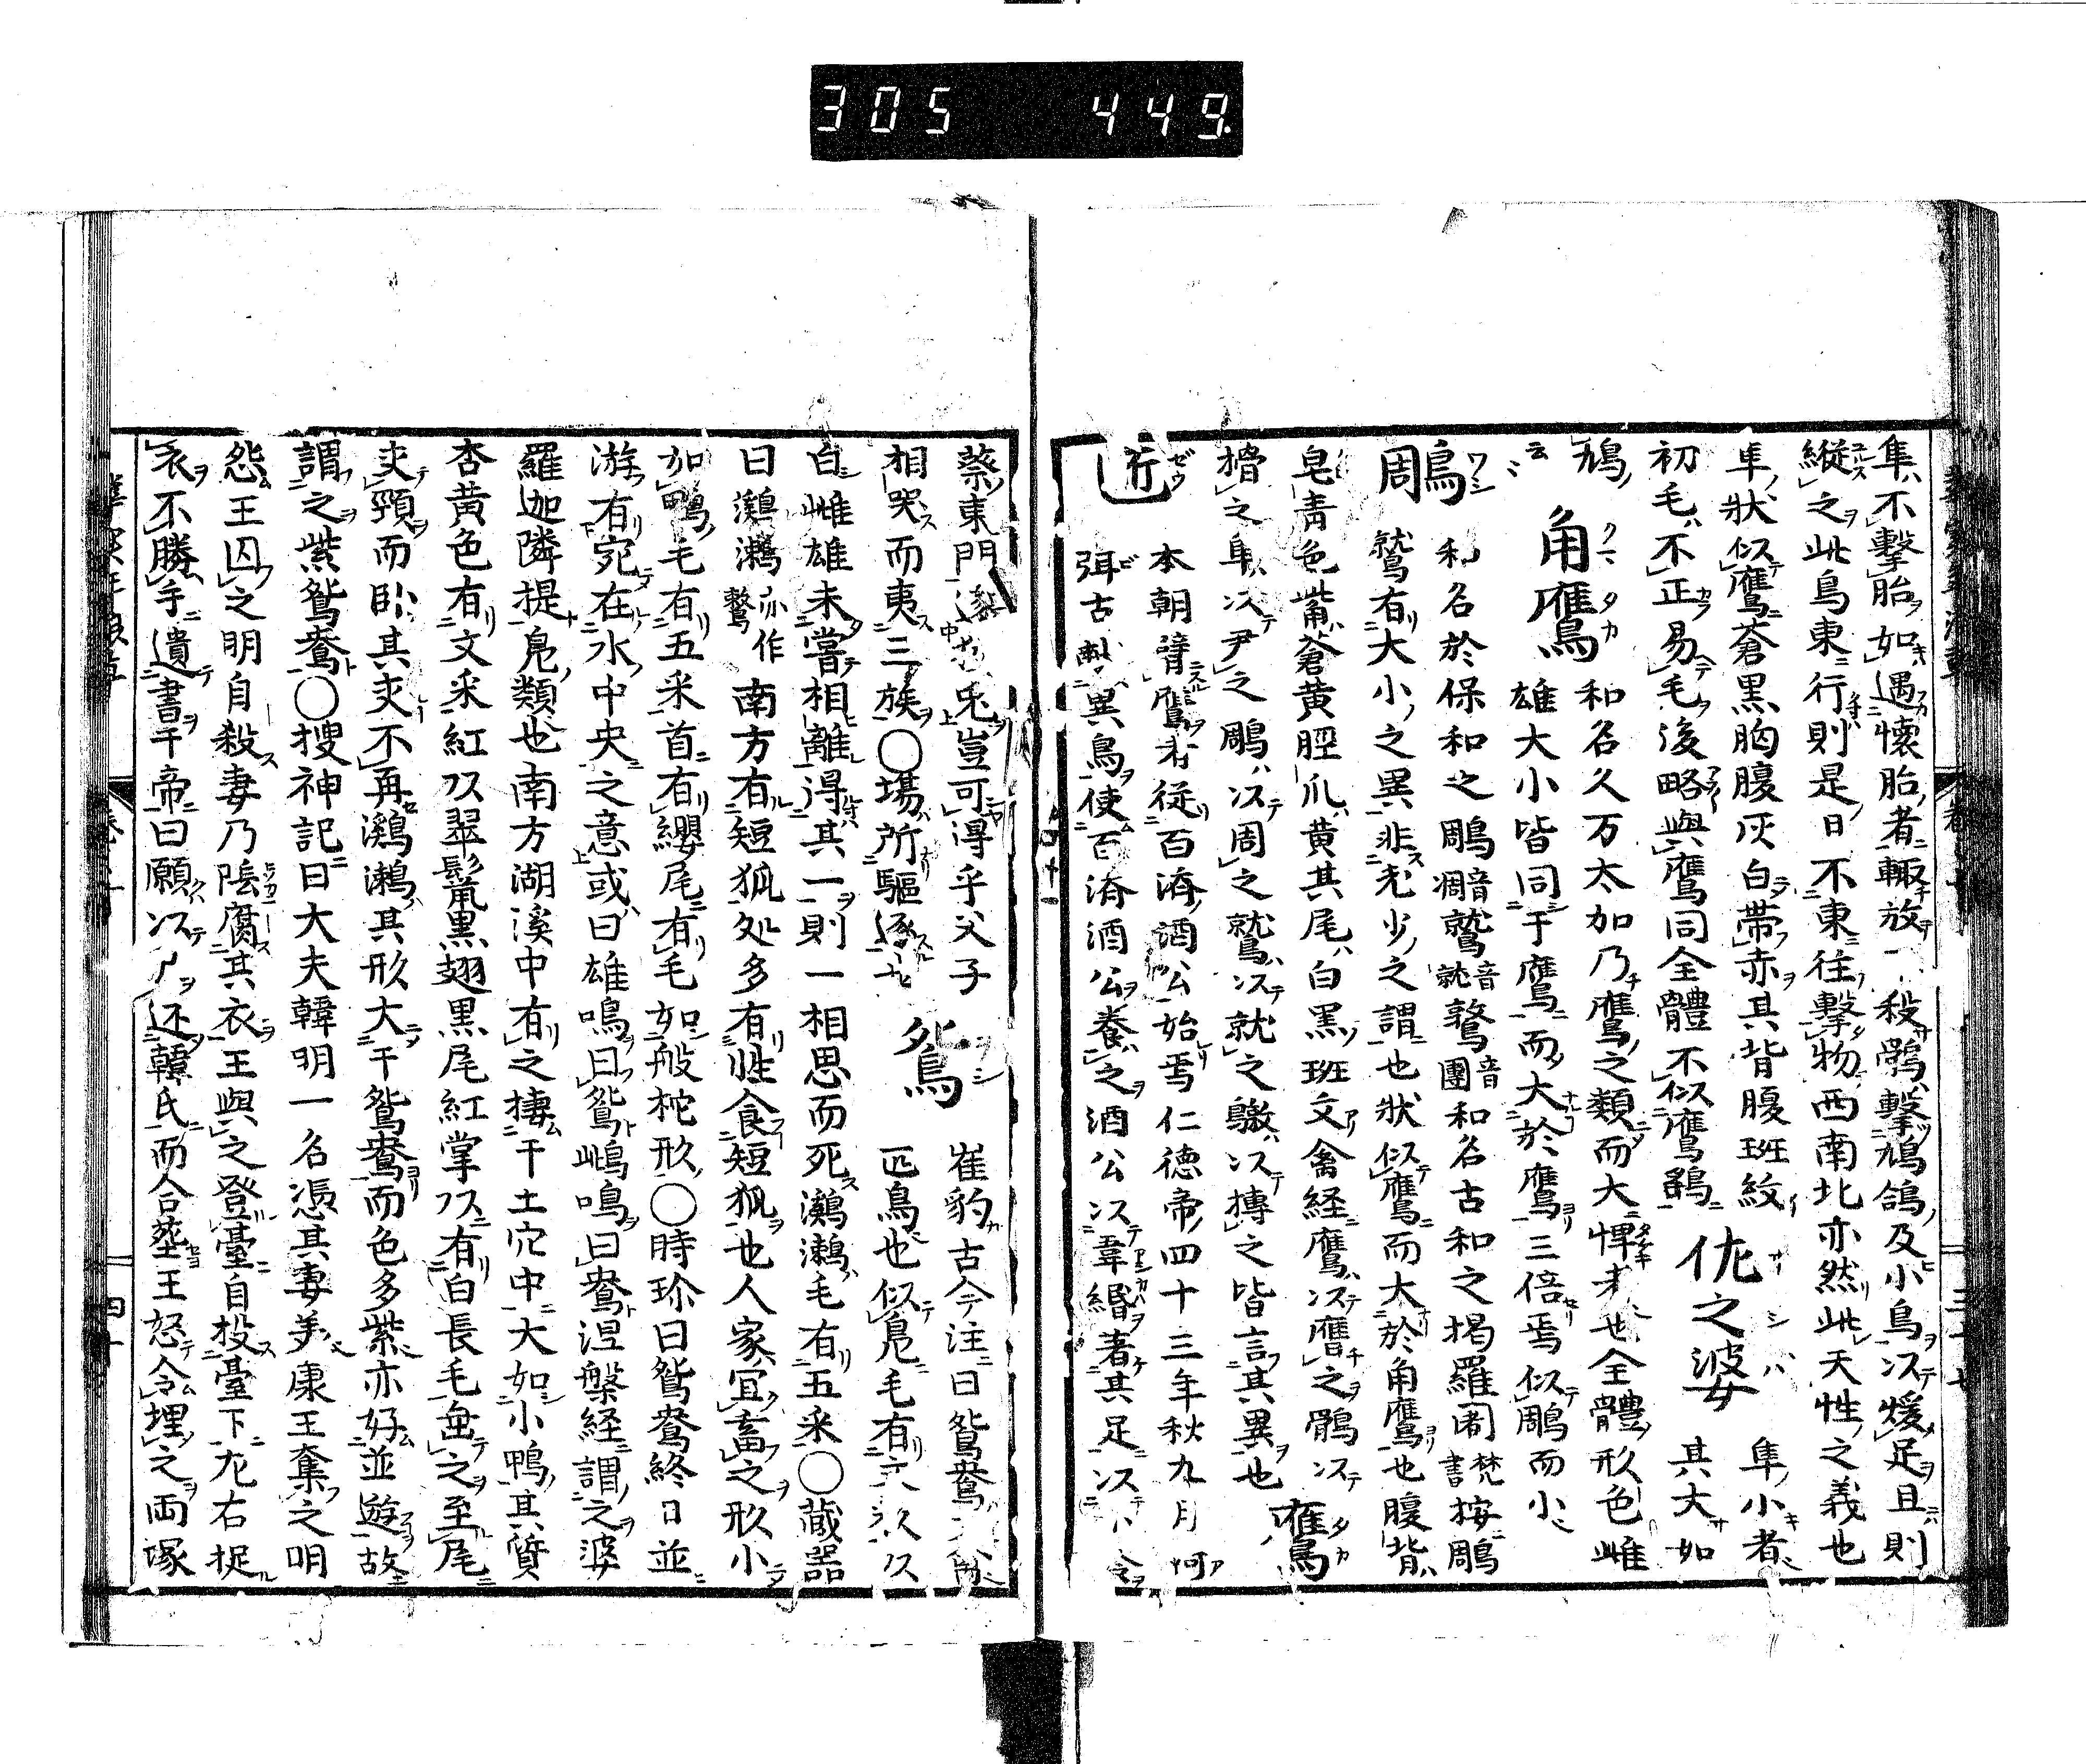 305 449
隼不撃胎如遇懐胎者輙放 不殺鶚撃鳩鴿及小鳥以煖足旦則
縦之此鳥東行則是日不東往撃物西南北亦然此天性之義也
隼狀似鷹蒼黒胸腹灰白帶赤其背腹班紋 佐之婆 隼小者其大如
初毛不正易毛後略與鷹同全體不似鷹鷂
鳩 角鷹 和名久万太加乃鷹之類而大悍者也全體形色雌
云 雄大小皆同于鷹而大於鷹三倍焉似鵰而小
鳥 和名於保和之鵰音凋鷲音就鷻音團和名古和之掲羅闍梵書按鵰
周 鷲有大小之異非老少之謂也狀似鷹而大於角鷹也腹背
皂青色觜蒼黄脛爪黄其尾白黒班文禽経鷹以膺之鶻以
搰之隼以尹之鵰以周之鷲以就之鷻以摶之皆言其異也 鷹
近 本朝臂鷹者從百済酒公始焉仁徳帝四十三年秋九月
弭古 異鳥使百済酒公養之酒公以韋緡著其足以 令
蔡東門逐 兎豈可得乎父子 崔豹古今注曰鴛鴦
相哭而夷三族○ 所驅逐 鴛 匹鳥也似鳧毛有
白雌雄未嘗相離得其一則一相思而死鸂鶒毛有五采○蔵器
曰鸂鶒亦作 南方有短狐処多有性食短狐也人家宜畜之形小
如鴨毛有五采首有纓尾有毛如般柁形○時珍曰鴛鴦終日並
游有宛在水中央之意或曰雄鳴曰鴛雌鳴曰鴦涅槃経謂之婆
羅迦隣提鳧類也南方湖溪中有之棲于土穴中大如小鴨其質
杏黄色有文采紅以翠鬣黒翅黒尾紅掌以有白長毛 之至尾
交頸而臥其交不再鸂鶒其形大于鴛鴦而色多紫亦好並遊故
謂之紫鴛鴦○搜神記曰大夫韓明一名憑其妻美康王奪之明
怨王囚之明自殺妻乃陰腐其衣王與之登臺自投臺下左右捉
衣不勝手遺書于帝曰願以 還韓氏而合塟王怒令埋之両塚